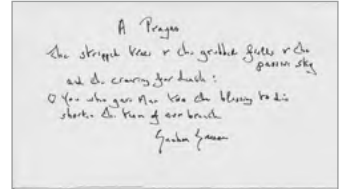 A Prayer
The stripped trees & the grubbed fields & the
sky
and the craving for death :
O You who gave Man too the blessing to die
shorten the term of our